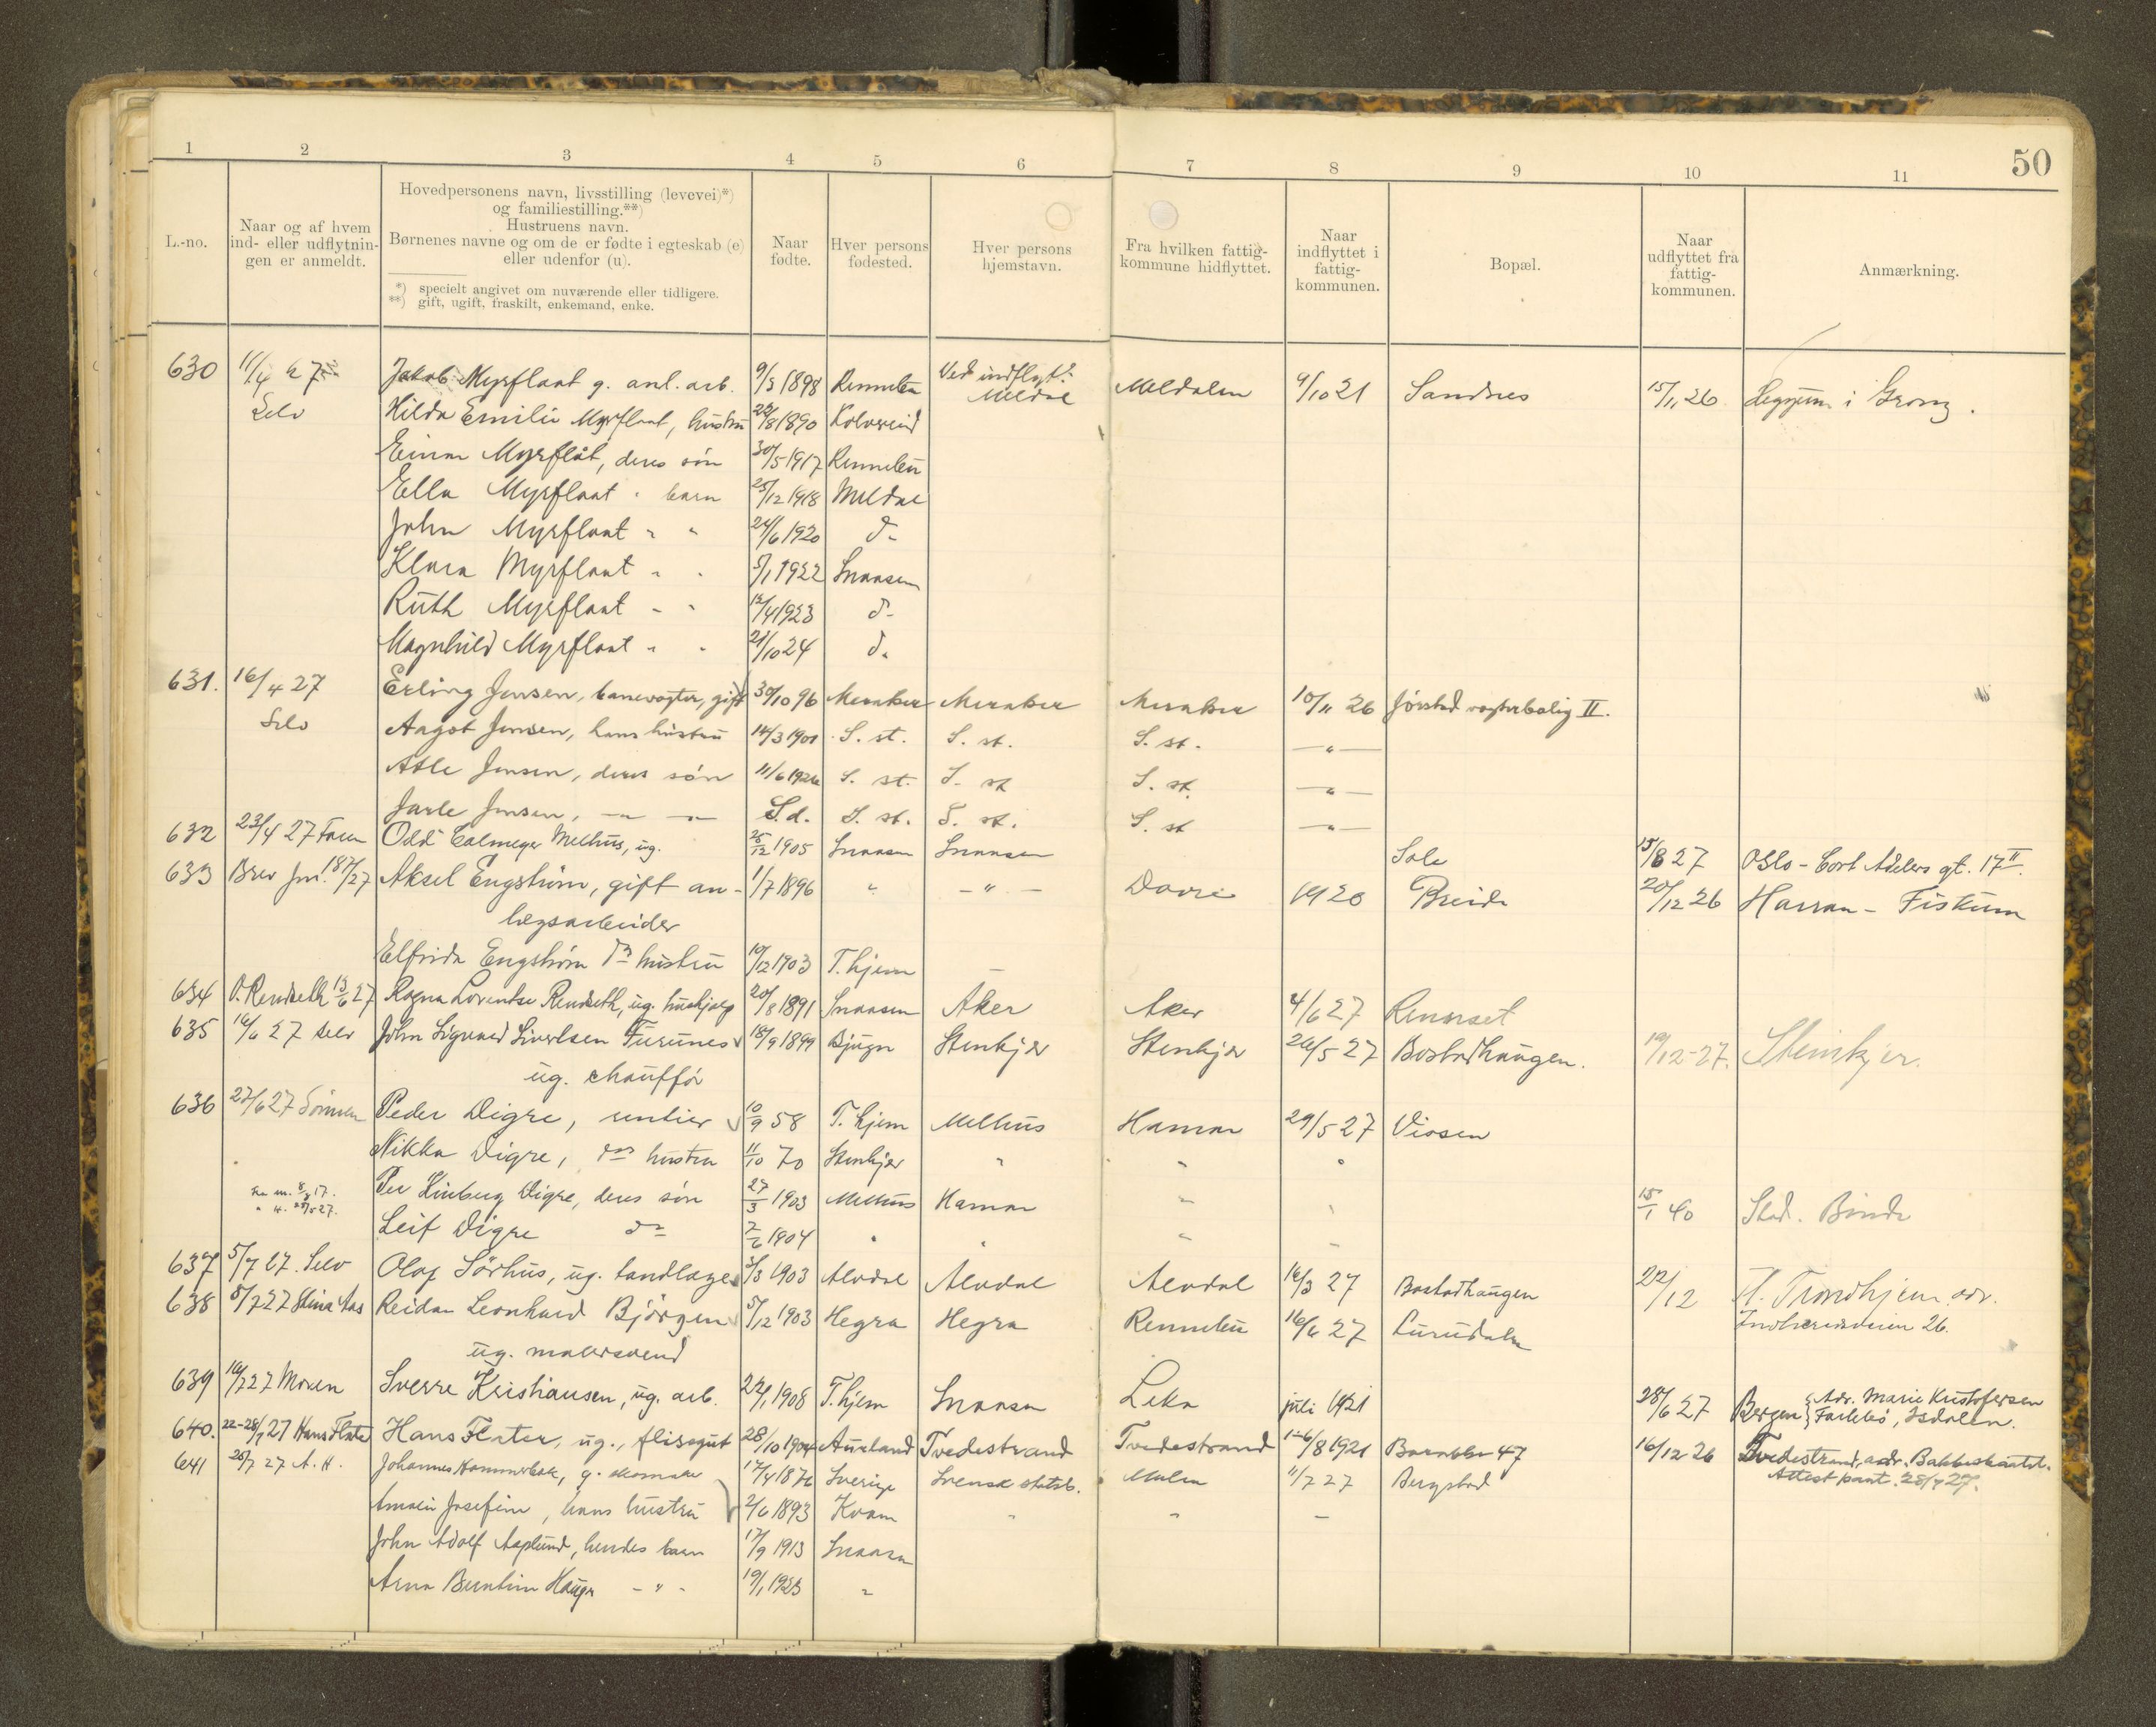 50
1 2 3 4 5 6 7 8 9 10 11
L.-no.
Naar og af hvem
ind- eller udflytnin-
gen er anmeldt.
Hovedpersonens navn, livsstilling (levevei)*)
og familiestilling.**)
Hustruens navn.
Børnenes navne og om de er fødte i egteskab (e)
eller udenfor (u).
*) specielt angivet om nuværende eller tidligere.
**) gift, ugift, fraskilt, enkemand, enke.
Naar
fødte.
Hver persons
fødested.
Hver persons
hjemstavn.
Fra hvilken fattig-
kommune hidflyttet.
Naar
indflyttet i
fattig-
kommunen.
Bopæl.
Naar
udflyttet fra
fattig-
kommunen.
Anmærkning.
630 11/4 27 Jakob Myrflaat g. anl. arb. 9/3 1898 Rennebu Ved indflyt. Meldal Meldalen 9/10 21 Sandnes 15/11 26 i Grong.
Selv Hilda Emilie Myrflaat, hustru 22/8 1890 Kolvereid
Einar Myrflåt, deres søn 30/5 1917 Rennebu
Ella Myrflaat " barn 25/12 1918 Meldal
John Myrflaat " " 24/6 1920 d-
Klara Myrflaat " " 5/1 1922 Snaasen
Ruth Myrflaat - " 12/4 1923 d-
Magnhild Myrflaat " " 21/10 24 d-
631. 16/4 27 Erling Jensen, banevogter, gift 30/10 96 Meraker Meraker Meraker 10/11 26 Jørstad vogterbolig II.
Selv Aagot Jensen, hans hustru 14/3 1901 S. st. S. st. S. st. — " —
Atle Jensen, deres søn 11/6 1926 S. st. S. st S. st. — " —
Jarle Jensen, — " — S.d. S. st. S. st. S. st — " —
632 23/4 27 Faren Odd Calmeyer Melhus, ug. 25/12 1905 Snaasen Snaasen Sole 15/8 27 Oslo - Cort Adelers gt. 17 II.
633 Brev Jnr. 187/27 Aksel Engstrøm, gift an- 1/7 1896 " — " — Dovre 1920 Breide 20/12 26 Harran - Fiskum
lægsarbeider
Elfrida Engstrøm ds hustru 10/12 1903 T.hjem —
634 O. Rendseth 13/6 27 Ragna Lorentse Rendseth, ug. hushjelp 20/8 1891 Snaasen Aker Aker 4/6 27 Renserset
635 16/6 27 selv John Sigvard Sivertsen Furunes 18/9 1899 Bjugn Stenkjer Stenkjer 26/5 27 Bostadhaugen. 19/12-27. Steinkjer.
ug. chauffør
636 27/6 27 Sønnen Peder Digre, rentier 10/9 58 T. hjem Melhus Hamar 29/5 27 Viosen
Nikka Digre, ds hustru 11/10 70 Stenkjer " " "
Per Linberg Digre, deres søn 27/3 1903 Melhus Hamar " " 15/1 40 Stod. Binde
Leif Digre ds 2/6 1904 " " " "
637 5/7 27. Selv Olaf Sörhus, ug. tandlæge 3/3 1903 Alvdal Alvdal Alvdal 16/3 27 Bostadhaugen 22/12 Trondhjem adr.
Indherredsveien 26.
638 8/7 27 Stina Aas Reidar Leonhard Björgen 5/12 1903 Hegra Hegra Rennebu 16/6 27 Lurudalen
ug. malersvend
639 14/7 27 Moren Sverre Kristiansen, ug. arb. 22/1 1908 T.hjem Snaasen Leka juli 1921 28/6 27 Bergen Adr. Marie Kristofersen
Isdalen.
640. 22-28/7 27 Hans Flater Hans Flater, ug., flisegut 28/10 1904 Aurland Tvedestrand Tvedestrand 1-6/8 1921 Barakke 47 16/12 26 Tvedestrand, adr.
Attest 28/7 27.
641 28/7 27 A. H. Johannes Hammerbak, g. skomaker 17/4 1876 Sverige Svensk statsb. Malm 11/7 27 Bergstad
Josefine, hans hustru 2/6 1893 Kvam " " —
John Adolf Asplund, hendes barn 17/9 1913 Snaasen
Arna Hauger - " - 19/1 1923 "